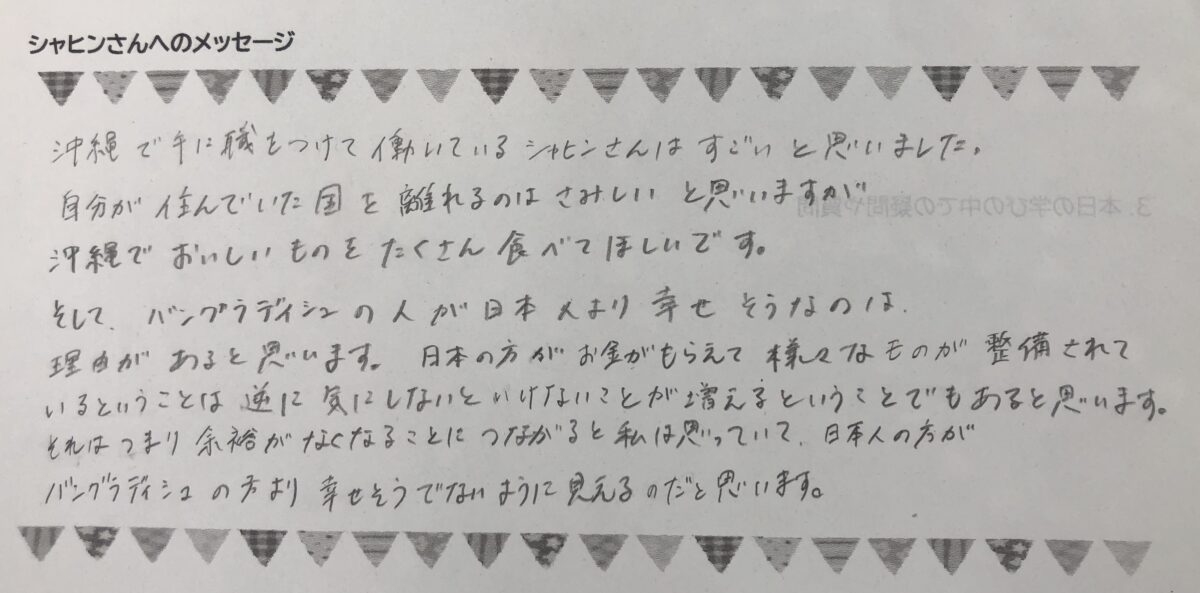 シャヒンさんへのメッセージ
沖縄で手に職をつけて働いているシャヒンさんはすごいと思いました。
自分が住んでいた国を離れるのはさみしいと思いますが
3. 本日の学びの中での疑問や質問
沖縄でおいしいものをたくさん食べてほしいです。
そして、バングラディシュの人が日本人より幸せそうなのは、
理由があると思います。日本の方がお金がもらえて様々なものが整備されて
いるということは逆に気にしないといけないことが増えるということでもあると思います。
それはつまり余裕がなくなることにつながると私は思っていて、日本人の方が
バングラディシュの方より幸せそうでないように見えるのだと思います。